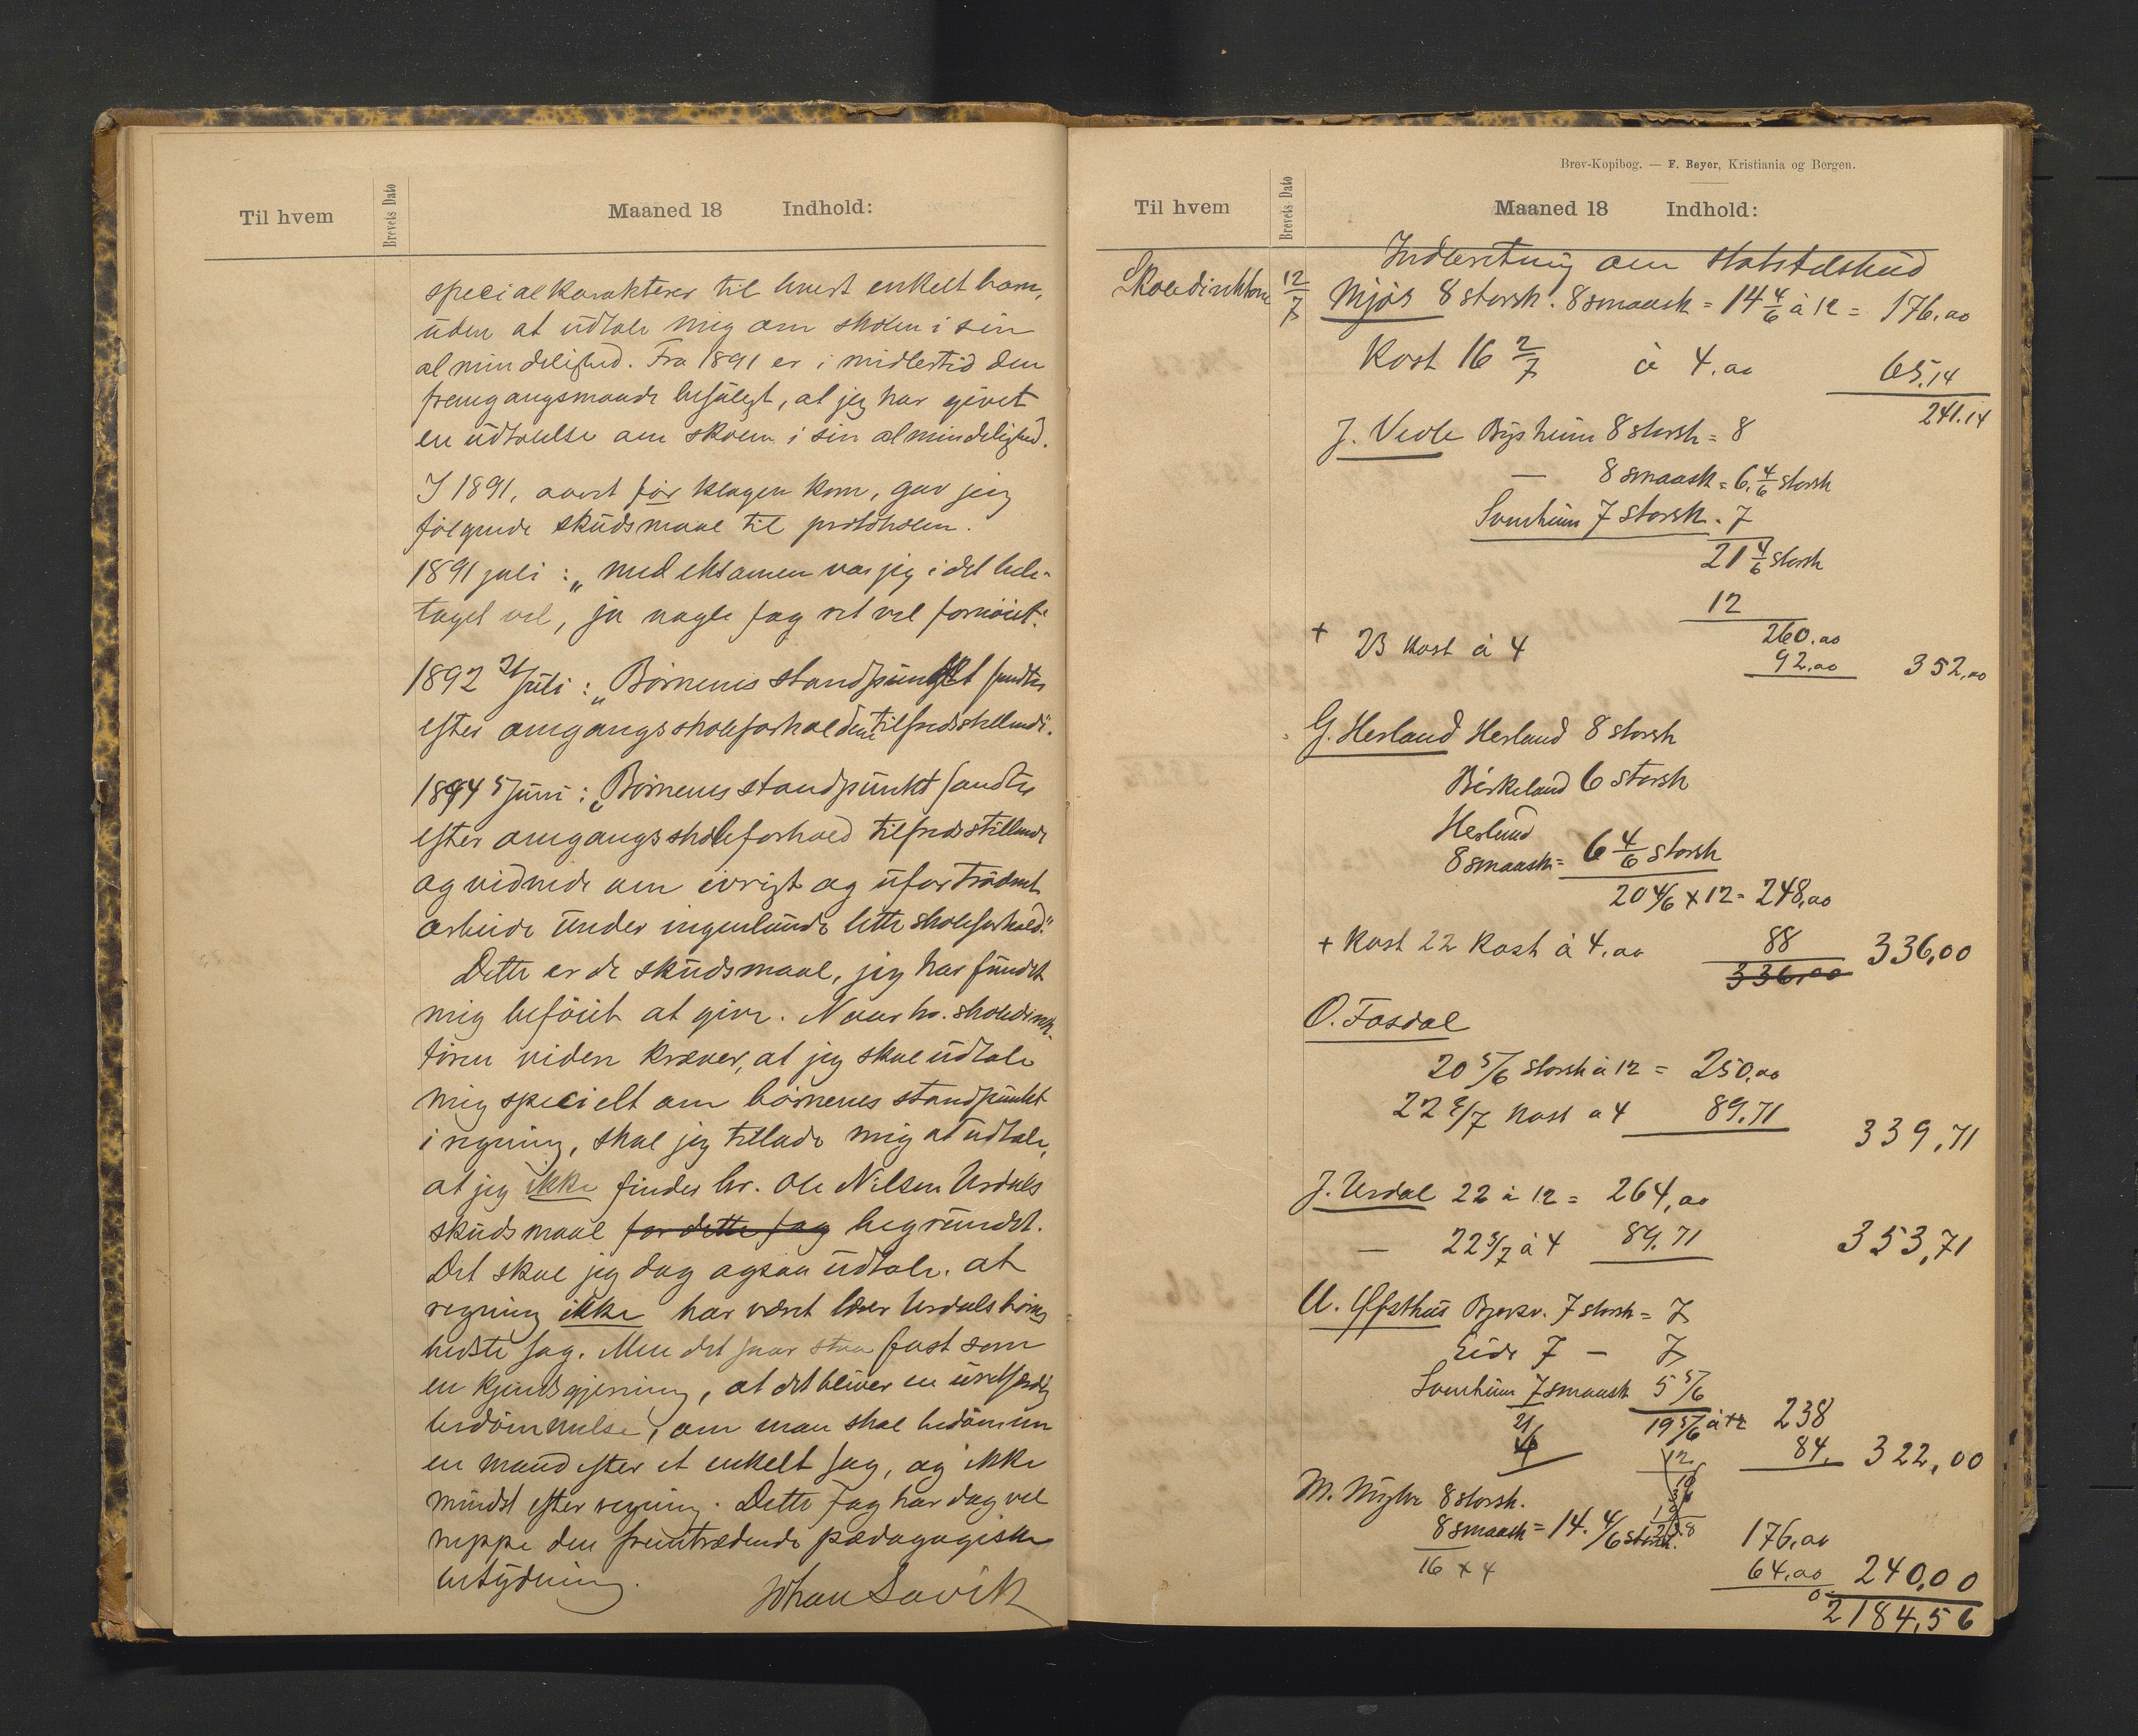 Til hvem
Brevets Dato
Maaned 18 Indhold:
specialkarakterer til hvert enkelt barn,
uden at udtale mig om skolen i sin
almindelighed. Fra 1891 er imidlertid den
fremgangsmaade befulgt, at jeg har givet
en udtalelse om skolen i sin almindelighed.
I 1891, aaret før klagen kom, gav jeg
følgende skudsmaal til protokolen.
1891 juli: „med eksamen var jeg i det hele-
taget vel, ja nogle fag ret vel fornøiet."
1892 juli: „Børnenes standpunkt fandtes
efter omgangsskoleforholdene tilfredsstillende".
1894 5 juni: „Børnenes standpunkt fandtes
efter omgangsskoleforhold tilfredsstillende
og vidnede om ivrigt og ufortrødent
arbeide under ingenlunde lette skoleforhold."
Dette er de skudsmaal, jeg har fundet
mig beføiet at give. Naar hr. skoledirek-
tøren viden kræver, at jeg skal udtale
mig specielt om børnenes standpunkt
i regning, skal jeg tillade mig at udtale,
at jeg ikke finder hr. Ole Nilsen Urdals
skudsmaal for dette fag begrundet.
Det skal jeg dog ogsaa udtale, at
regning ikke har været lærer Urdals børns
bedste fag. Men det faar staa fast som
en kjendsgjerning, at det bliver en uretfærdig
bedømmelse, om man skal bedømme
en mand efter et enkelt fag, og ikke
mindst efter regning. Dette fag har dog vel
neppe den fremtrædende pædagogiske
betydning.
Johan Lavik
Brev-Kopibog. — F. Beyer, Kristiania og Bergen.
Til hvem
Brevets Dato
Maaned 18 Indhold:
Indberetning om statstilskud
Skoledirektøren 12/7 Mjøs 8 storsk. 8 smaask = 14 4/6 à 12 = 176,00
Kost 16 2/7 à 4.00 65.14
241.14
J. Vevle Bysheim 8 storsk = 8
— 8 smaask = 6 4/6 storsk
Svenheim 7 storsk. 7
21 4/6 storsk
12
260.00
+ 23 kost à 4 92,00 352,00
G. Herland Herland 8 storsk
Birkeland 6 storsk
Herland
8 smaask = 6 4/6 storsk
20 4/6 x 12 = 248,00
+ Kost 22 kost à 4.00 88 336,00
336,00
O. Fosdal
20 5/6 storsk à 12 = 250,00
22 3/7 kost a 4 89.71 339,71
J. Urdal 22 à 12 = 264,00
— 22 3/7 à 4 89.71 353,71
U. Offsthus 7 storsk = 7
Eide 7 — 7
Svenheim 7 smaask 5 5/6
21 19 5/6 à 12 238
84. 322,00
12
M. 8 storsk.
8 smaask = 14. 4/6 storsk. 176,00
16 x 4 64,00 240,00
2184,56